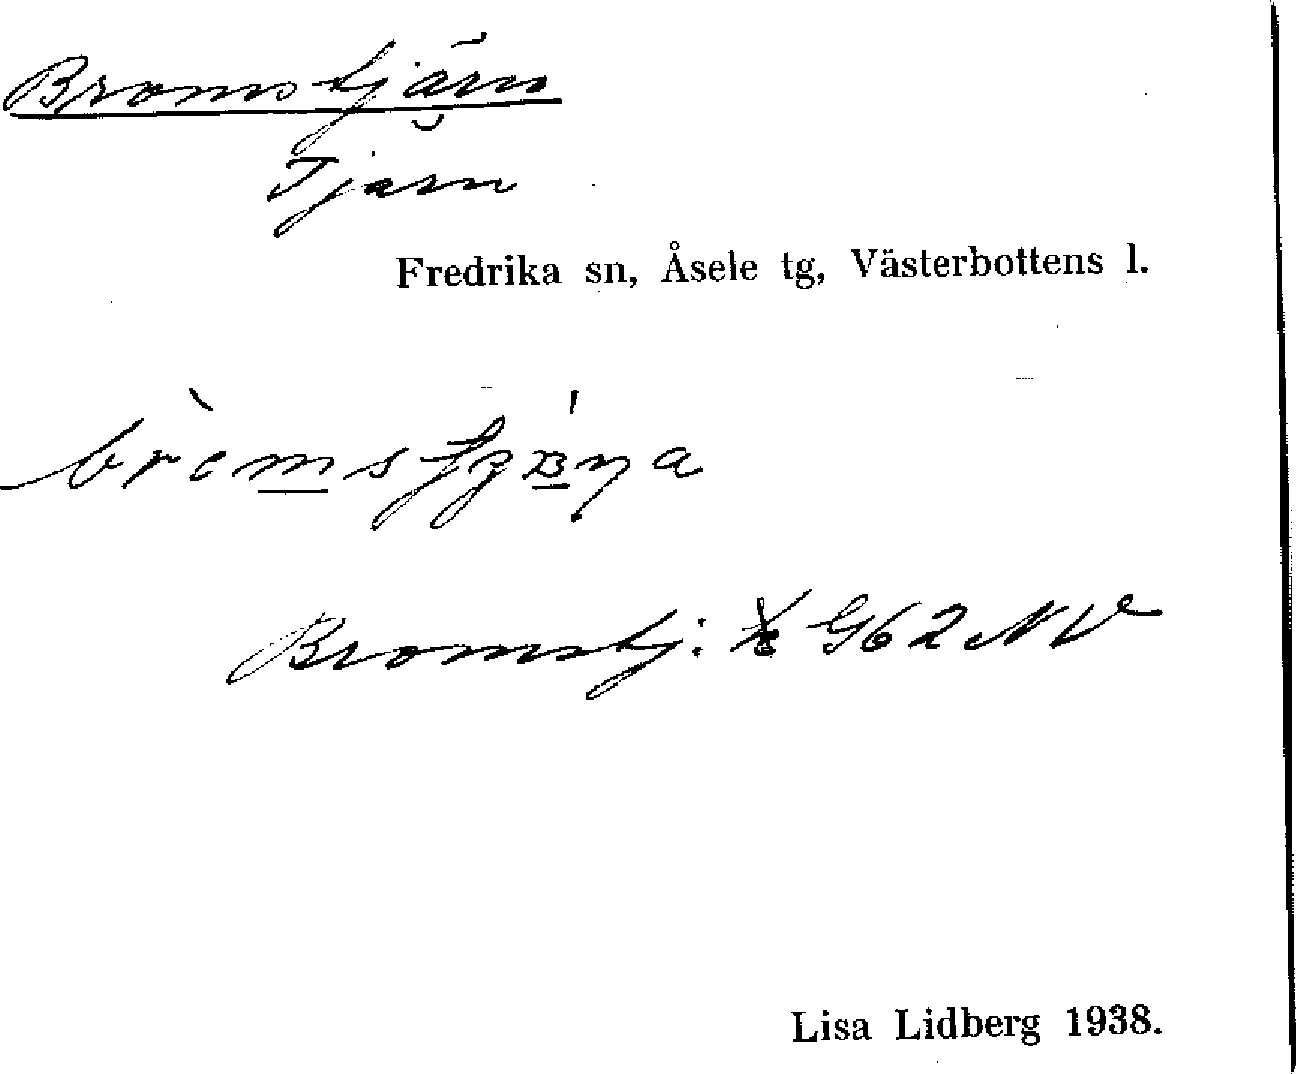 Bromstjärn
Tjärn
Fredrika sn, Åsele tg, Västerbottens l.
Bromstj: G62NV
Lisa Lidberg 1938.